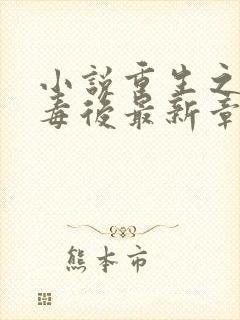 小説重生之
毒後最新章
熊本市